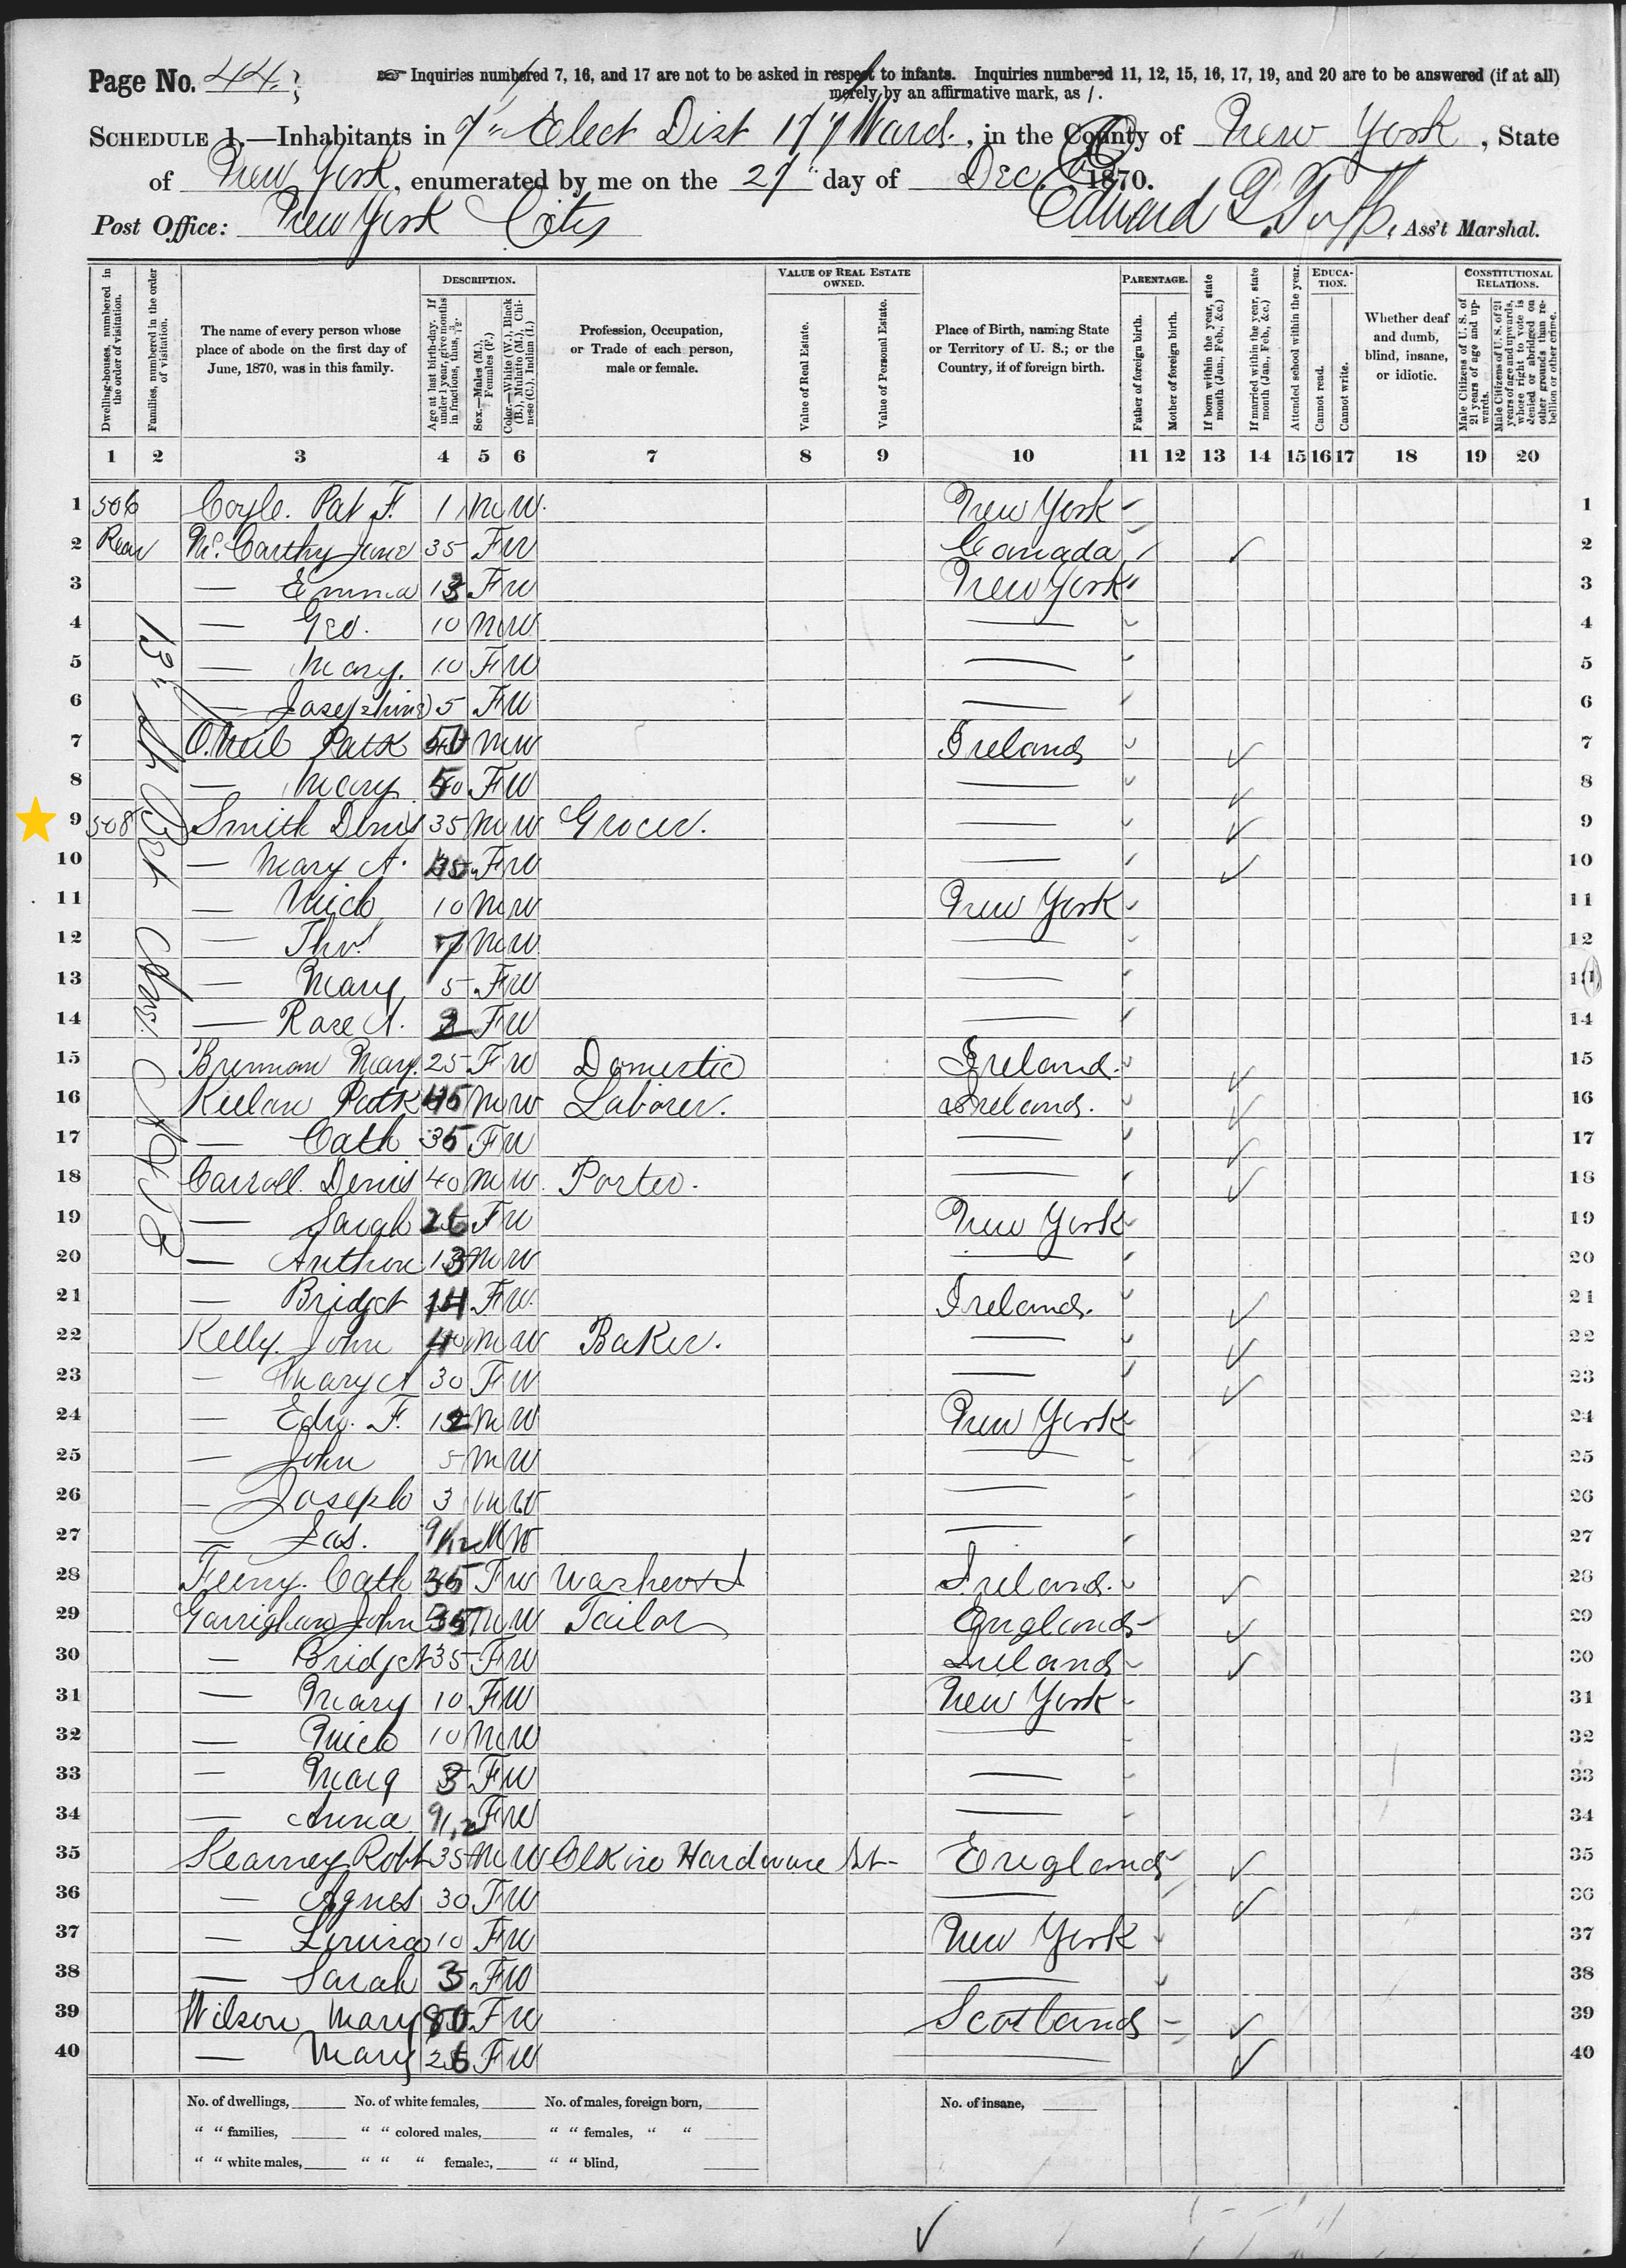 Page No. 44.
Inquiries numbered 7, 16, and 17 are not to be asked in respect to infants. Inquiries numbered 11, 12, 15, 16, 17, 19, and 20 are to be answered (if at all)
merely by an affirmative mark, as /.
SCHEDULE 1.—Inhabitants in 7" Elect Dist 17" Ward., in the County of New York, State
of New York, enumerated by me on the 27" day of Dec. 1870.
Post Office: New York City Edward G. , Ass't Marshal.
Dwelling-houses, numbered in the order of visitation.
Families, numbered in the order of visitation.
The name of every person whose place of abode on the first day of June, 1870, was in this family.
DESCRIPTION.
Age at last birth-day. If under 1 year, give months in fractions, thus, 3/12.
Sex.—Males (M.), Females (F.)
Color.—White (W.), Black (B.), Mulatto (M.), Chinese (C.), Indian (I.)
Profession, Occupation, or Trade of each person, male or female.
VALUE OF REAL ESTATE OWNED.
Value of Real Estate.
Value of Personal Estate.
Place of Birth, naming State or Territory of U. S.; or the Country, if of foreign birth.
PARENTAGE.
Father of foreign birth.
Mother of foreign birth.
If born within the year, state month (Jan., Feb., &c.)
If married within the year, state month (Jan., Feb., &c.)
Attended school within the year.
EDUCATION.
Cannot read.
Cannot write.
Whether deaf and dumb, blind, insane, or idiotic.
CONSTITUTIONAL RELATIONS.
Male Citizens of U. S. of 21 years of age and upwards.
Male Citizens of U. S. of 21 years of age and upwards, whose right to vote is denied or abridged on other grounds than rebellion or other crime.
1 2 3 4 5 6 7 8 9 10 11 12 13 14 15 16 17 18 19 20
1 506 Coyle. Pat F. 1 M W. New York 1
2 Rear McCarthy Jane 35 F W Canada 2
3 — Emma 13 F W New York 3
4 — Geo. 10 M W — 4
5 — Mary. 10 F W — 5
6 — Josephine 5 F W — 6
7 O.Neil Patk 50 M W Ireland 7
8 — Mary 50 F W — 8
9 508 Smith Denis 35 M W Grocer. — 9
10 — Mary A. 45 F W — 10
11 — Mich 10 M W New York 11
12 — Thos 7 M W — 12
13 — Mary 5 F W — 13
14 — Rose A. 2 F W — 14
15 Brennan Mary. 25 F W Domestic Ireland. 15
16 Keelan Patk 45 M W Laborer. Ireland. 16
17 — Cath 35 F W — 17
18 Carroll. Denis 40 M W. Porter. — 18
19 — Sarah 26 F W New York 19
20 — 13 M W — 20
21 — Bridget 14 F W. Ireland. 21
22 Kelly. John 40 M W Baker. — 22
23 — Mary A 30 F W — 23
24 — Edw. F. 12 M W New York 24
25 — John 5 M W — 25
26 — Joseph 3 M W — 26
27 — Jas. 9/12 M W — 27
28 Cath 35 F W Ireland. 28
29 Garrighan John 35 M W Tailor England 29
30 — Bridget 35 F W Ireland 30
31 — Mary 10 F W New York 31
32 — Mich 10 M W — 32
33 — Marg 3 F W — 33
34 — Anna 9/12 F W — 34
35 Kearney Robt 35 M W Clk in Hardware St England 35
36 — Agnes 30 F W — 36
37 — Louisa 10 F W New York 37
38 — Sarah 3 F W — 38
39 Wilson Mary 80 F W Scotland 39
40 — Mary 26 F W — 40
13" St Bet
No. of dwellings, No. of white females, No. of males, foreign born, No. of insane,
" " families, " " colored males, " " females, " "
" " white males, " " " females, " " blind,